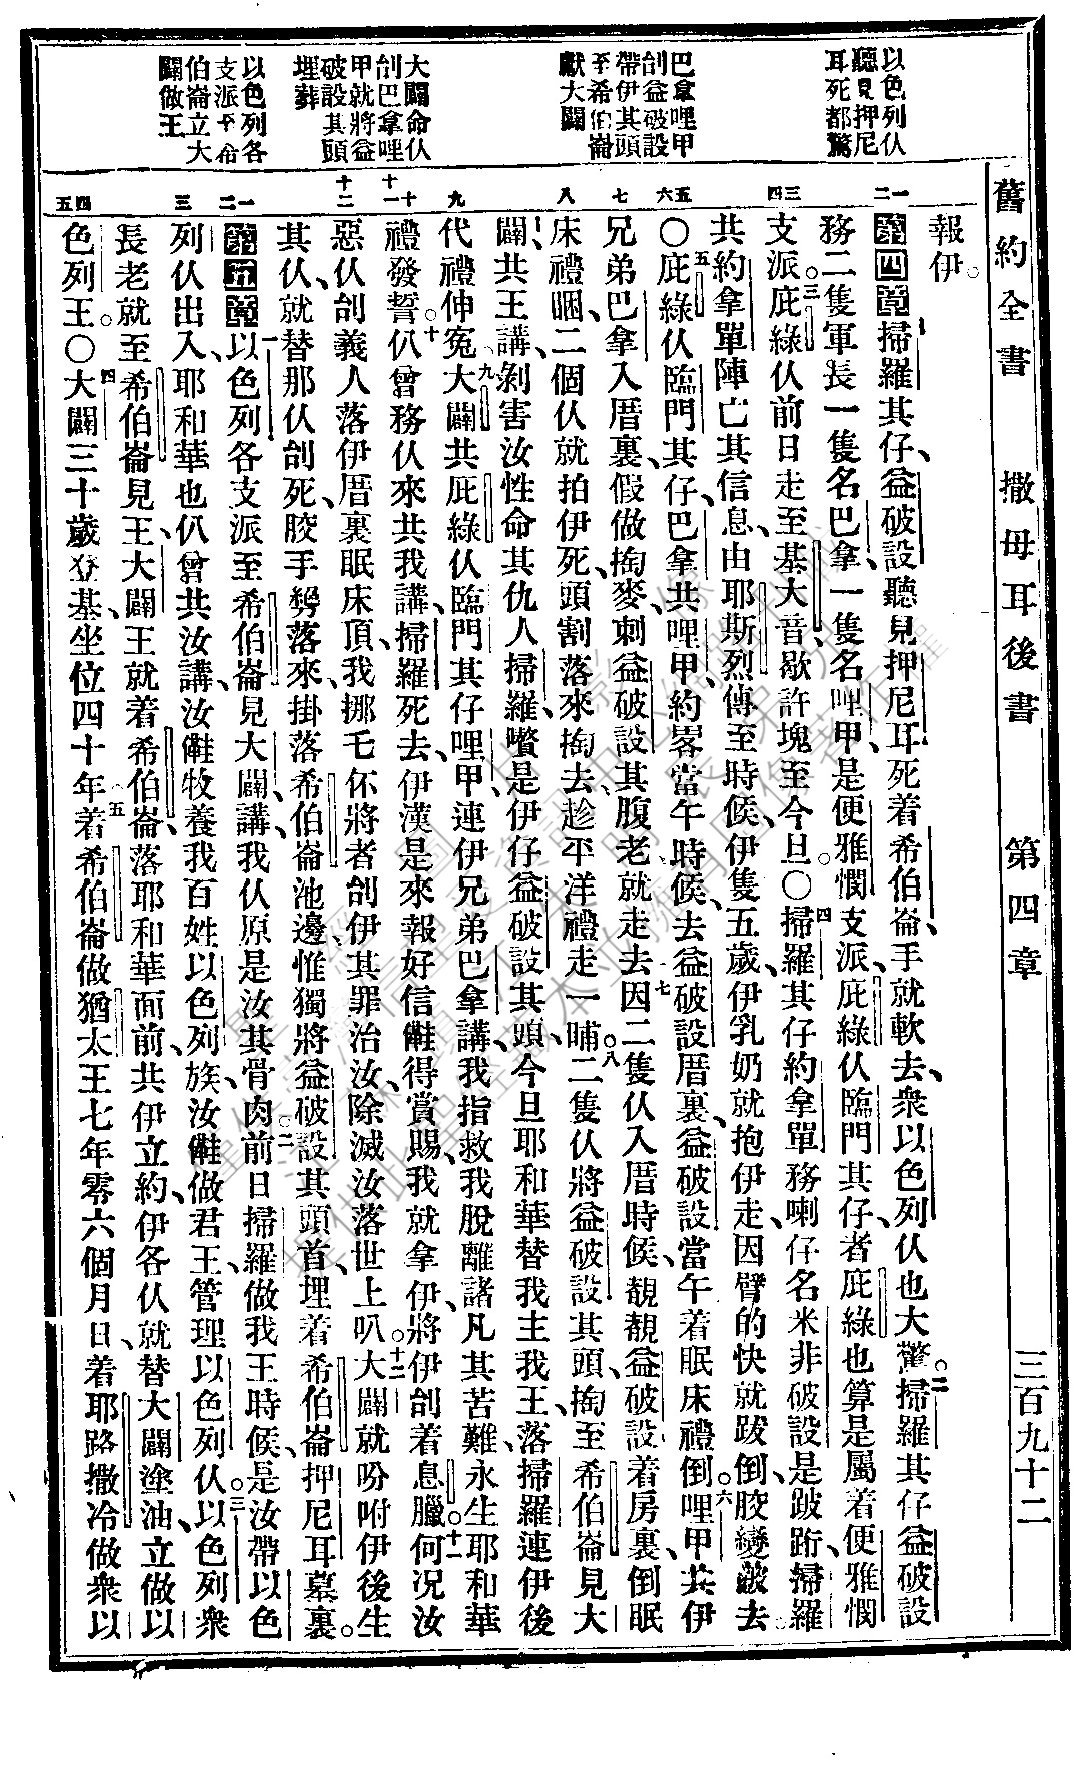 舊約全書 撒母耳後書 第四章 三百九十二
以色列仈
聽見押尼
耳死都驚
巴拿哩甲
刣益破設
帶伊其頭
至希伯崙
獻大闢
大闢命仈
刣巴拿哩
甲就將益
破設其頭
埋葬
以色列各
支派至希
伯崙立大
闢做王
報伊。
第四章掃羅其仔、益破設聽見押尼耳死着希伯崙、手就軟去、衆以色列仈也大驚。二掃羅其仔益破設
務二隻軍長一隻名巴拿、一隻名哩甲、是便雅憫支派、庇綠仈臨門其仔、者庇綠也算是屬着便雅憫
支派。三庇綠仈前日走至基大音、歇許塊至今旦。〇四掃羅其仔約拿單務喇仔名米非破設是跛䟓、掃羅
共約拿單陣亡其信息、由耶斯烈傳至時候、伊隻五歲、伊乳奶就抱伊走、因臂的快就跋倒、骹變皺去。
〇五庇綠仈臨門其仔、巴拿共哩甲、約畧當午時候、去益破設厝裏、益破設當午着眠床禮倒。六哩甲共伊
兄弟巴拿入厝裏、假做掏麥、刺益破設其腹老就走去、七因二隻仈入厝時候、覩覩益破設着房裏倒眠
床禮睏、二個仈就拍伊死、頭割落來掏去、趁平洋禮走一晡。八二隻仈將益破設其頭、掏至希伯崙見大
闢、共王講、剝害汝性命其仇人掃羅、嚽是伊仔益破設其頭、今旦耶和華替我主我王、落掃羅連伊後
代禮伸冤。九大闢共庇綠仈臨門其仔哩甲、連伊兄弟巴拿講、我指救我脫離諸凡其苦難、永生耶和華
禮發誓。十仈曾務仈來共我講、掃羅死去、伊漢是來報好信、𣍐得賞賜、我就拿伊、將伊刣着息臘。十一何况汝
惡仈刣義人落伊厝裏眠床頂、我挪乇伓將者刣伊其罪治汝、除滅汝落世上叭。十二大闢就吩咐伊後生
其仈、就替那仈刣死、骹手剺落來、掛落希伯崙池邊、惟獨將益破設其頭首、埋着希伯崙押尼耳墓裏。
第五章一以色列各支派至希伯崙見大闢講、我仈原是汝其骨肉。二前日掃羅做我王時候、是汝帶以色
列仈出入、耶和華也仈曾共汝講、汝𣍐牧養我百姓以色列族、汝𣍐做君王、管理以色列仈。三以色列衆
長老就至希伯崙見王、大闢王就着希伯崙落耶和華面前、共伊立約、伊各仈就替大闢塗油、立做以
色列王。〇四大闢三十歲登基、坐位四十年。五着希伯崙做猶太王七年零六個月日、着耶路撒冷做衆以